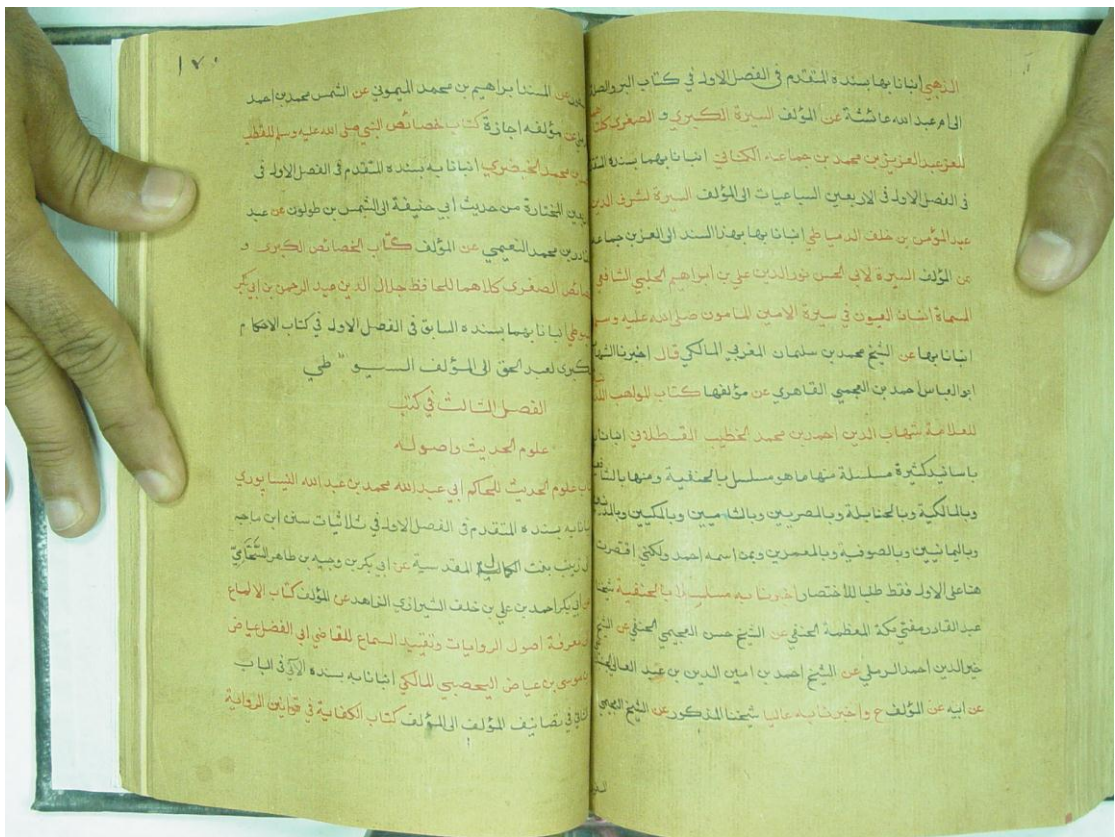 الذهبي انبانا بها بسنده المتقدم في الفصل الاول في كتاب البر والصلة
الى ام عبد الله عائشة عن المؤلف السيرة الكبرى و الصغرى كلتاهما
للعز عبد العزيز بن محمد بن جماعة الكناني انبانا بهما بسنده المتقدم
في الفصل الاول في الاربعين السباعيات الى المؤلف السيرة لشرف الدين
عبد المؤمن بن خلف الدمياطي انبانا بها بهذا السند الى العز بن جماعة
عن المؤلف السيرة لابي الحسن نور الدين علي بن ابراهيم الحلبي الشافعي
المسماة انسان العيون في سيرة الامين المامون صلى الله عليه وسلم
انبانا بها عن الشيخ محمد بن سليمان المغربي المالكي قال اخبرنا الشهاب
ابو العباس احمد بن العجمي القاهري عن مؤلفها كتاب المواهب اللدنية
للعلامة شهاب الدين احمد بن محمد الخطيب القسطلاني انبانا به
باسانيد كثيرة مسلسلة منها ما هو مسلسل بالحنفية ومنها بالشافعية
وبالمالكية وبالحنابلة وبالمصريين وبالشاميين وبالمكيين وبالمدنيين
وباليمانيين وبالصوفية وبالمعمرين وبمن اسمه احمد ولكني اقتصرت
هنا على الاول فقط طلبا للاختصار اخبرنا به مسلسلا بالحنفية شيخنا
عبد القادر مفتي مكة المعظمة الحنفي عن الشيخ حسن العجيمي الحنفي عن الشيخ
خير الدين احمد الرملي عن الشيخ احمد بن امين الدين بن عبد العال
عن ابيه عن المؤلف ح واخبرنا به عاليا شيخنا المذكور عن الشيخ العجيمي
١٧٠
عن المسند ابراهيم بن محمد الميموني عن الشمس محمد بن احمد
الرملي عن مؤلفه اجازة كتاب خصائص النبي صلى الله عليه وسلم للقطب
بن محمد الخيضري انبانا به بسنده المتقدم في الفصل الاول في
المختارة من حديث أبي حنيفة الى الشمس بن طولون عن عبد
القادر بن محمد النعيمي عن المؤلف كتاب الخصائص الكبرى و
الخصائص الصغرى كلاهما للحافظ جلال الدين عبد الرحمن بن ابي بكر
السيوطي انبانا بهما بسنده السابق في الفصل الاول في كتاب الاحكام
الكبرى لعبد الحق الى المؤلف السيوطي
الفصل الثالث في كتب
علوم الحديث واصوله
كتاب علوم الحديث للحاكم أبي عبد الله محمد بن عبد الله النيسابوري
انبانا به بسنده المتقدم في الفصل الاول في ثلاثيات سنن ابن ماجه
الى زينب بنت الكمال المقدسية عن ابي بكر بن وجيه بن طاهر الشحامي
عن أبي بكر احمد بن علي بن خلف الشيرازي الزاهد عن المؤلف كتاب الالماع
في معرفة اصول الروايات وتقييد السماع للقاضي ابي الفضل عياض
بن موسى بن عياض اليحصبي المالكي انبانا به بسنده الآتي في الباب
الثاني في تصانيف المؤلف الى المؤلف كتاب الكفاية في قوانين الرواية